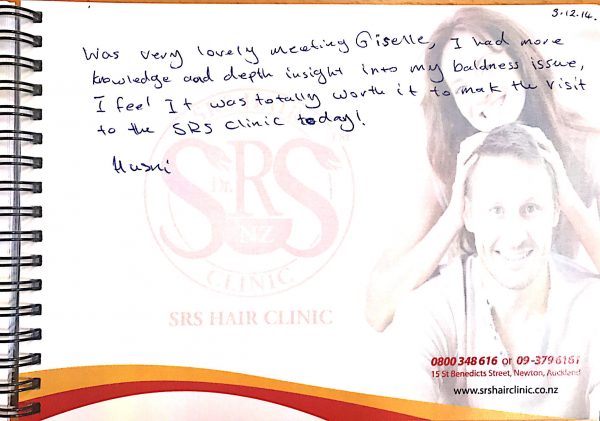 3.12.14.
Was very lovely meeting Giselle, I had more
knowledge and depth insight into my baldness issue,
I feel It was totally worth it to mak the visit
to the SRS Clinic today!
Husni
SRS
NZ
CLINIC
SRS HAIR CLINIC
0800 348 616 or 09-379 6161
15 St Benedicts Street, Newton, Auckland
www.srshairclinic.co.nz